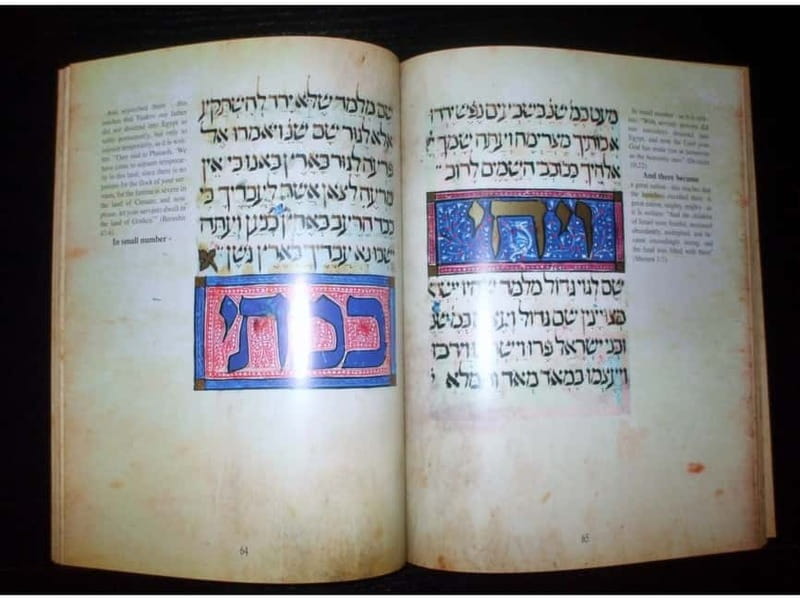 And sojourned there - this
teaches that Yaakov our father
did not descend into Egypt to
settle permanently, but only to
sojourn temporarily, as it is writ-
ten: "They said to Pharaoh, 'We
have come to sojourn temporar-
ily in this land, since there is no
pasture for the flock of your ser-
vants, for the famine is severe in
the land of Canaan; and now
please, let your servants dwell in
the land of Goshen'" (Bereshit
47:4).
In small number -
שם מלמד שלא ירד להשתקע
אלא לגור שם שנ ויאמרו אל
פרעה לגור בארץ באנו כי אין
מרעה לצאן אשר לעבדיך כי
כבד הרעב בארץ כנען ועתה
ישבו נא עבדיך בארץ גשן
במתי
64
מעט כמ שנ בשבעים נפש ירדו
אבותיך מצרימה ועתה שמך
אלהיך ככוכבי השמים לרוב
ויהי
שם לגוי גדול מלמד שהיו
מצויינין שם גדול ועצום כמ שנ
ובני ישראל פרו וישרצו וירבו
ויעצמו במאד מאד ותמלא
In small number - as it is writ-
ten: "With seventy persons did
our ancestors descend to
Egypt, and now the Lord your
God has made you as numerous
as the heavenly stars" (Devarim
10:22).
And there became
a great nation - this teaches that
the
great nation, and mighty - as
it is written: "And the children
of Israel were fruitful, increased
abundantly, multiplied, and be-
came exceedingly strong, and
the land was filled with them"
(Shemot 1:7).
65